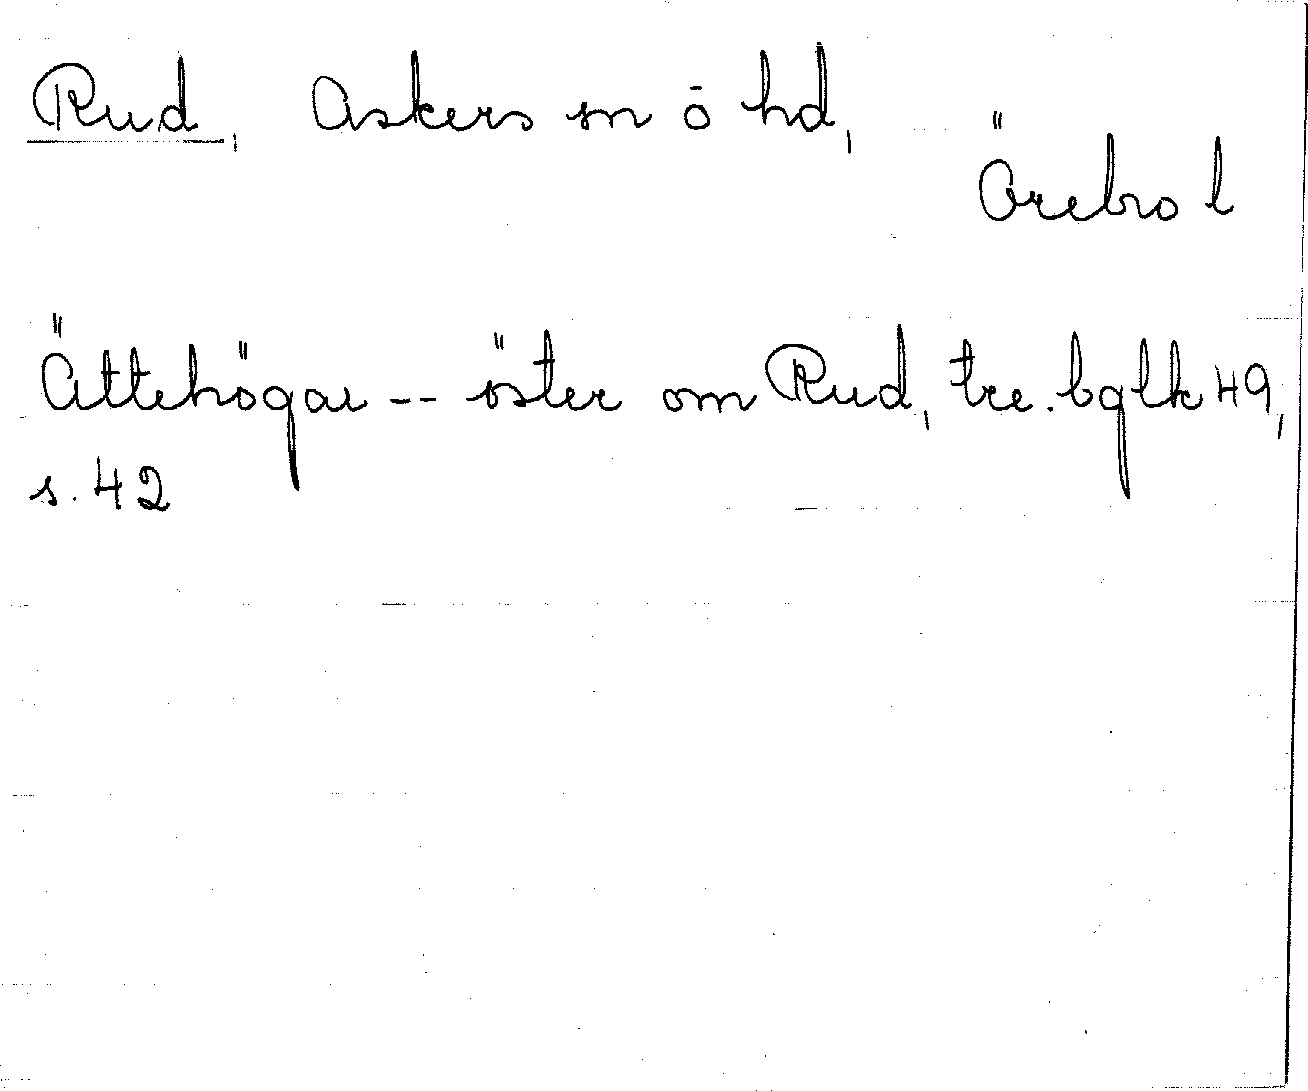 Rud, Askers sn o hd,
Örebro l
Ättehögar -- öster om Rud, tre. bglk 49,
s. 42